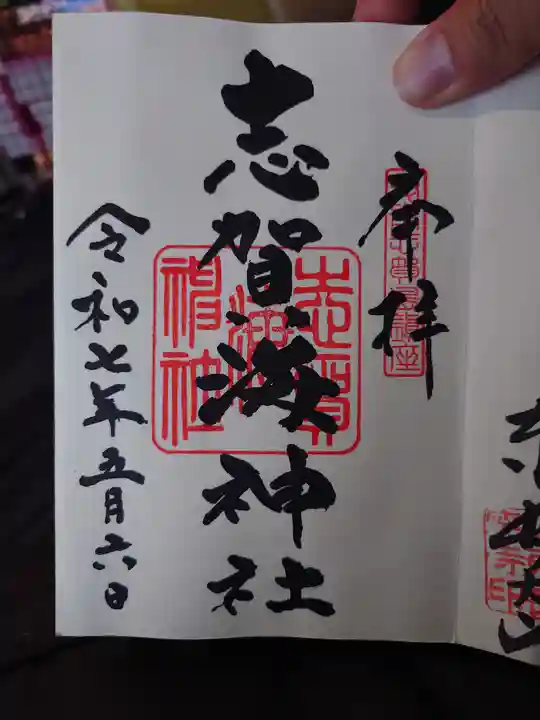 奉拝
志賀海神社
令和七年五月六日
志賀
海
神社